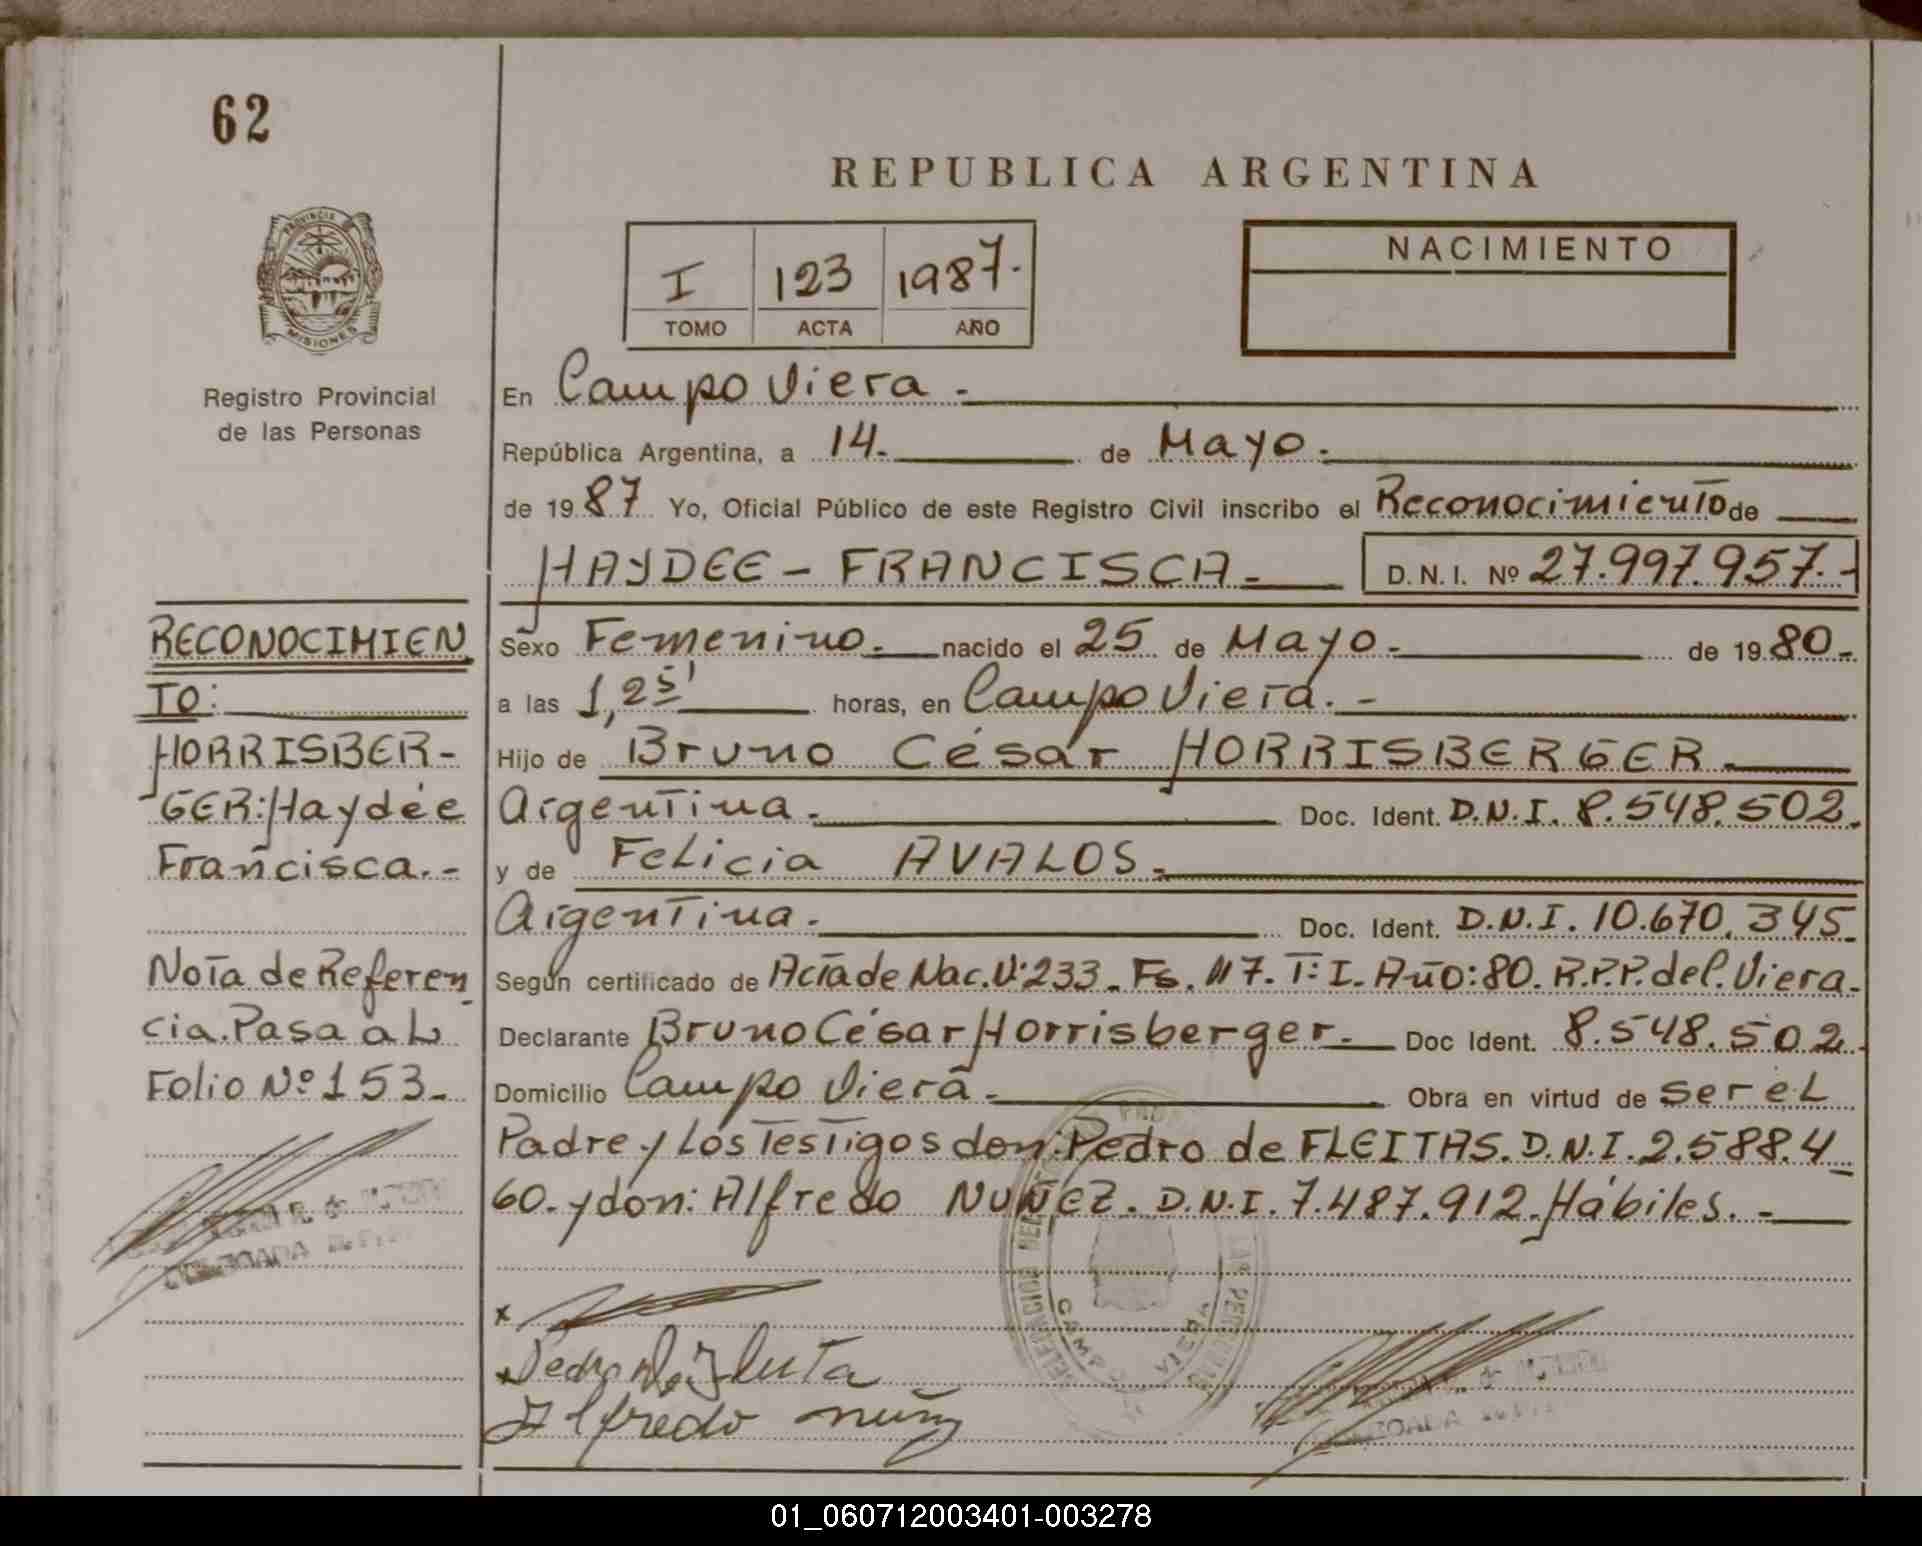 62
REPUBLICA ARGENTINA
PROVINCIA
MISIONES
Registro Provincial
de las Personas
I 123 1987.
TOMO ACTA AÑO
NACIMIENTO
En Campo Viera.-
República Argentina, a 14. de Mayo.
de 1987 Yo, Oficial Público de este Registro Civil inscribo el Reconocimiento de
HAYDEE - FRANCISCA.- D.N.I. Nº 27.997.957.-
Sexo Femenino.- nacido el 25 de Mayo.- de 1980.-
a las 1,25' horas, en Campo Viera.-
Hijo de Bruno César HORRISBERGER.-
Argentina.- Doc. Ident. D.N.I. 8.548.502.
y de Felicia AVALOS.-
Argentina.- Doc. Ident. D.N.I. 10.670.345.-
Según certificado de Acta de Nac. Nº 233. Fs. 117. T: I. Año: 80. R.P.P. de C. Viera.-
Declarante Bruno César Horrisberger.- Doc Ident. 8.548.502.
Domicilio Campo Viera.- Obra en virtud de ser el
Padre y los Testigos don: Pedro de FLEITAS. D.N.I. 2.588.4
60. y don: Alfredo NUÑEZ. D.N.I. 7.487.912. Hábiles.-
RECONOCIMIEN
TO:
HORRISBER-
GER: Haydée
Francisca.-
Nota de Referen
cia. Pasa al
Folio Nº 153.-
x
x Pedro
Alfredo nuñ
CAMPO VIERA
01_060712003401-003278